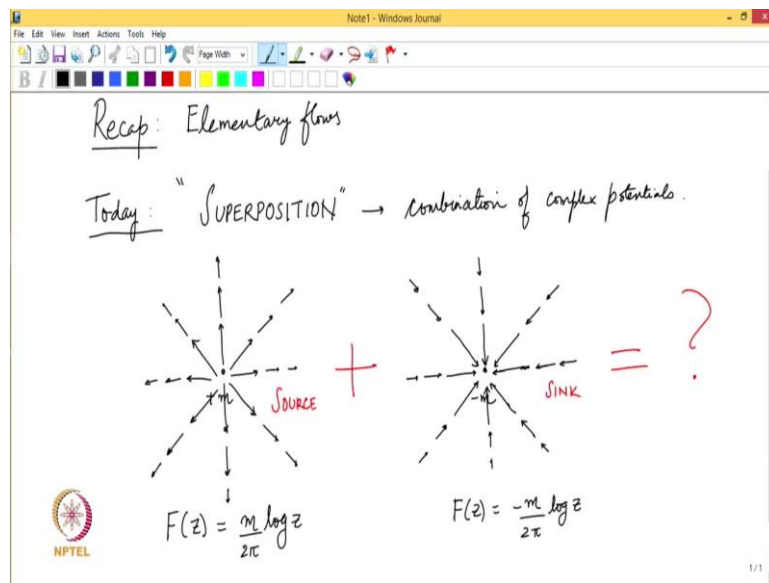 Note1 - Windows Journal
File Edit View Insert Actions Tools Help
Page Width
B I
Recap: Elementary flows
Today: "SUPERPOSITION" → combination of complex potentials.
+m SOURCE + -m SINK = ?
F(z) = m/2π log z
F(z) = -m/2π log z
NPTEL
1/1